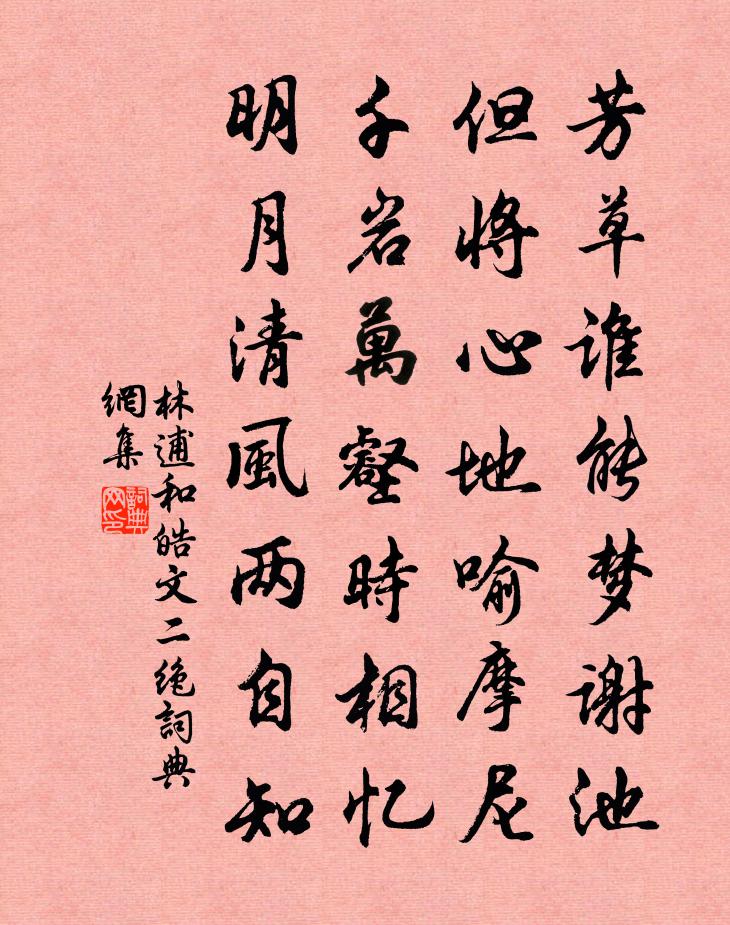 芳草谁能梦谢池
但将心地喻摩尼
千岩萬壑時相忆
明月清風两自知
林逋和皓文二绝詞典
網集
詞典網印